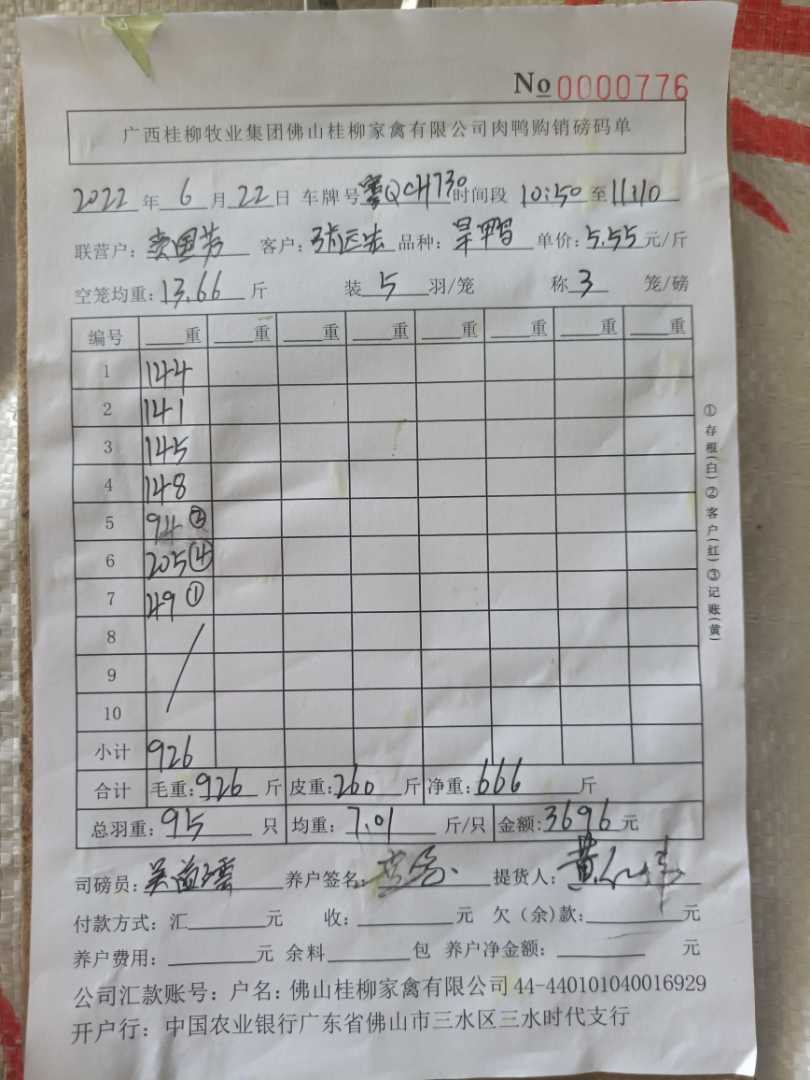 No 0000776
广西桂柳牧业集团佛山桂柳家禽有限公司肉鸭购销磅码单
2022 年 6 月 22 日 车牌号 粤QCH730 时间段 10:50 至 11:10
联营户: 客户: 品种: 旱鸭 单价: 5.55 元/斤
空笼均重: 13.66 斤 装 5 羽/笼 称 3 笼/磅
编号 重 重 重 重 重 重 重 重
1 144
2 141
3 145
4 148
5 94 ②
6 205 ④
7 49 ①
8
9
10
小计 926
合计 毛重: 926 斤 皮重: 260 斤 净重: 666 斤
总羽重: 95 只 均重: 7.01 斤/只 金额: 3696 元
司磅员: 养户签名: 提货人: 黄
付款方式: 汇 元 收: 元 欠(余)款: 元
养户费用: 元 余料 包 养户净金额: 元
公司汇款账号: 户名: 佛山桂柳家禽有限公司 44-440101040016929
开户行: 中国农业银行广东省佛山市三水区三水时代支行
①存根(白)②客户(红)③记账(黄)